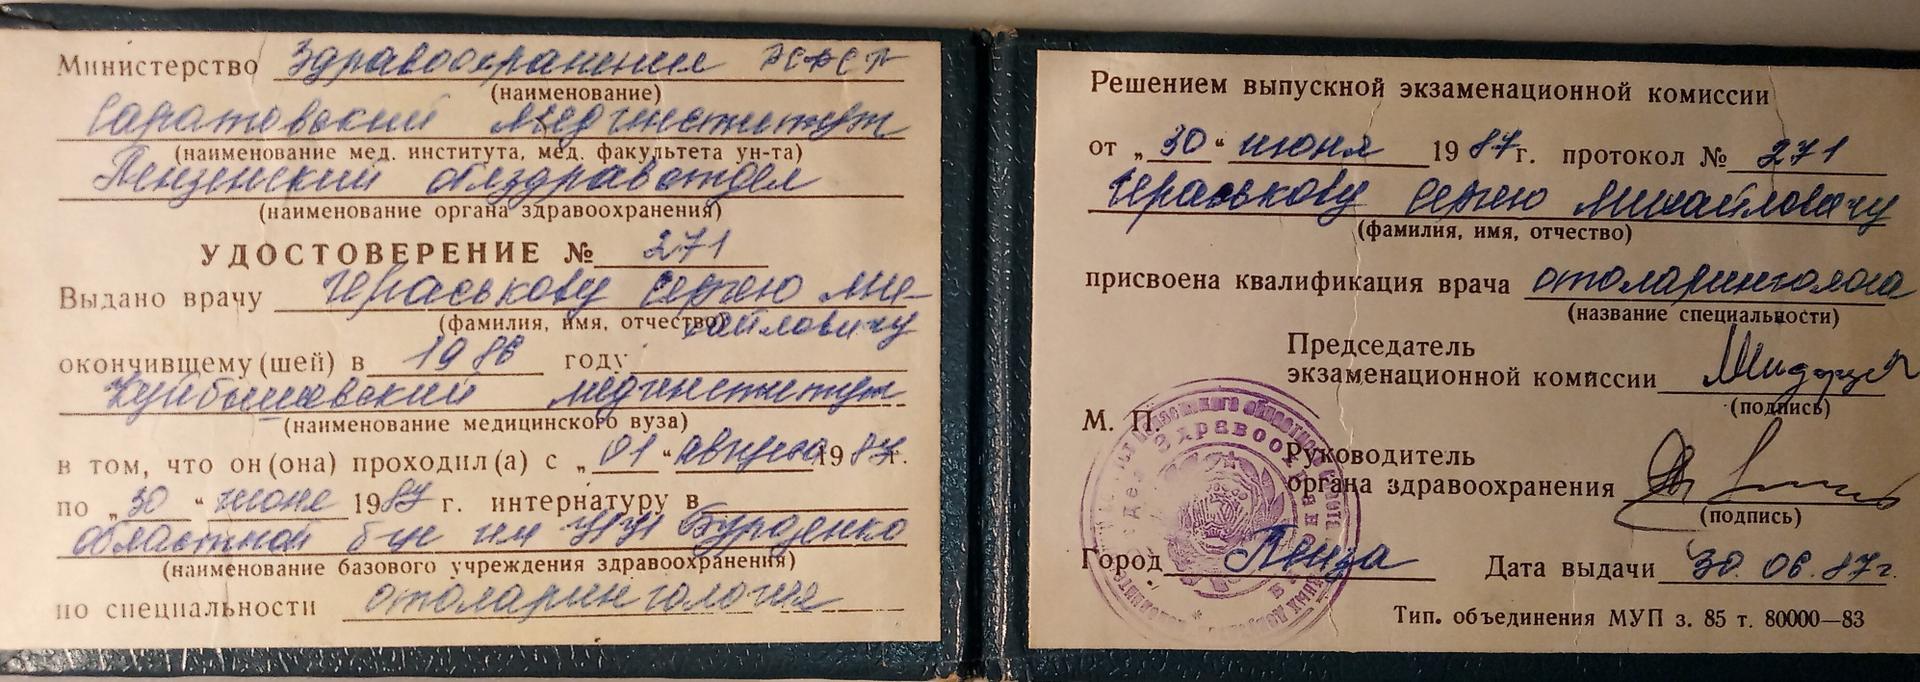 Министерство Здравоохранения РСФСР
(наименование)
Саратовский мединститут
(наименование мед. института, мед. факультета ун-та)
Пензенский облздравотдел
(наименование органа здравоохранения)
УДОСТОВЕРЕНИЕ № 271
Выдано врачу Гераськову Сергею Ми-
(фамилия, имя, отчество) хайловичу
окончившему (шей) в 1986 году
Куйбышевский мединститут
(наименование медицинского вуза)
в том, что он (она) проходил (а) с „01“ августа 19 г.
по „30“ июня 1987 г. интернатуру в
областной б-це им Н Н Бурденко
(наименование базового учреждения здравоохранения)
по специальности отоларингология
Решением выпускной экзаменационной комиссии
от „30“ июня 1987г. протокол № 271
Гераськову Сергею Михайловичу
(фамилия, имя, отчество)
присвоена квалификация врача отоларинголога
(название специальности)
Председатель
экзаменационной комиссии
(подпись)
М. П.
Руководитель
органа здравоохранения
(подпись)
Город Пенза Дата выдачи 30.06.87г.
Тип. объединения МУП з. 85 т. 80000—83